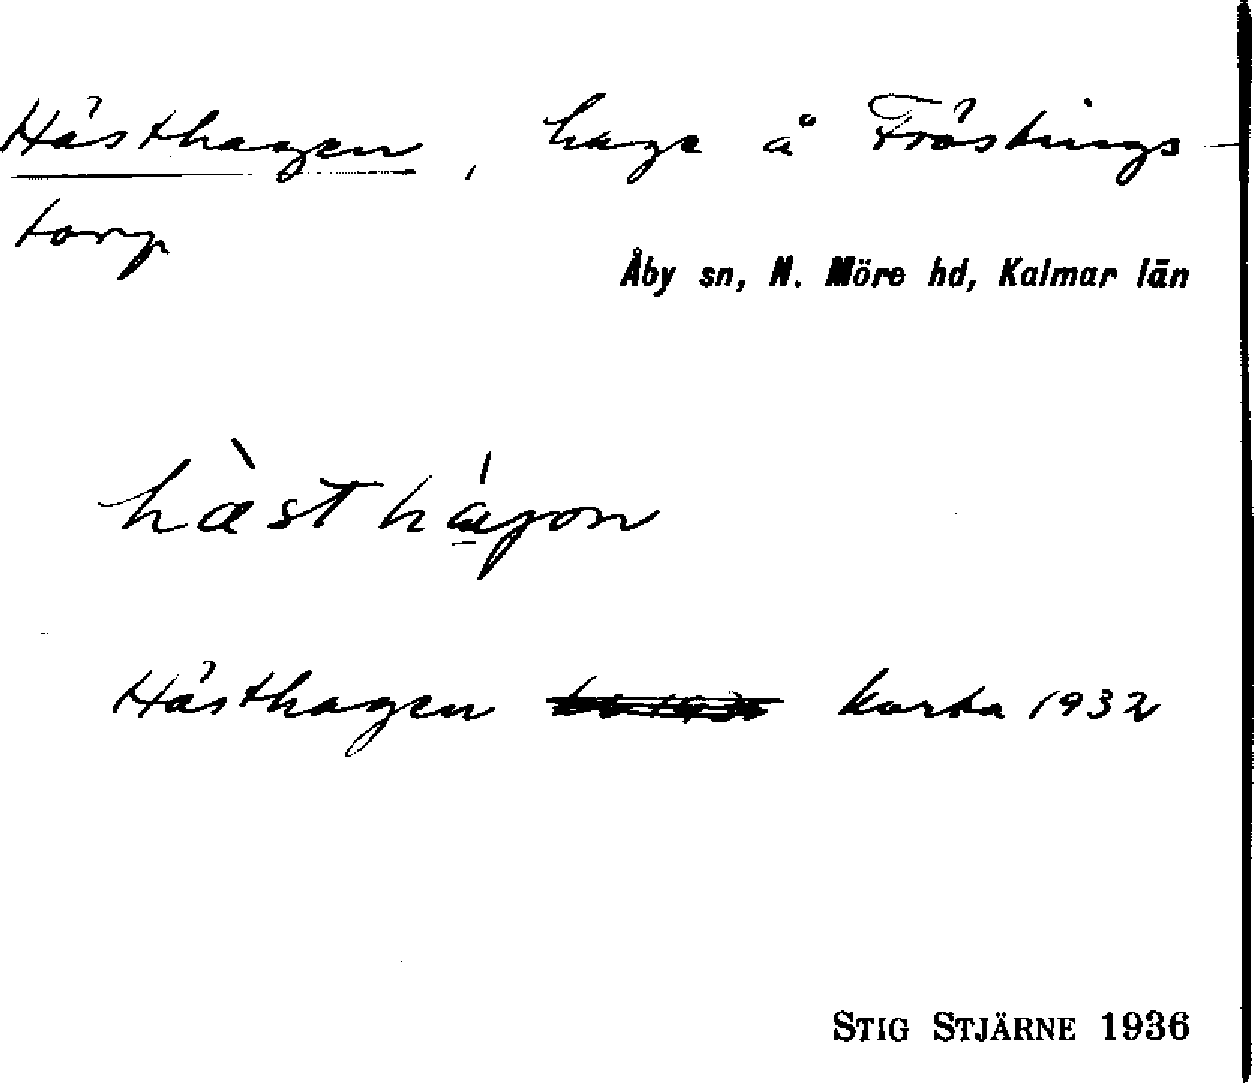 Hästhagen, hage å Fröstings-
torp
Åby sn, N. Möre hd, Kalmar län
hæ̀st hágon
Hästhagen karta 1932
STIG STJÄRNE 1936